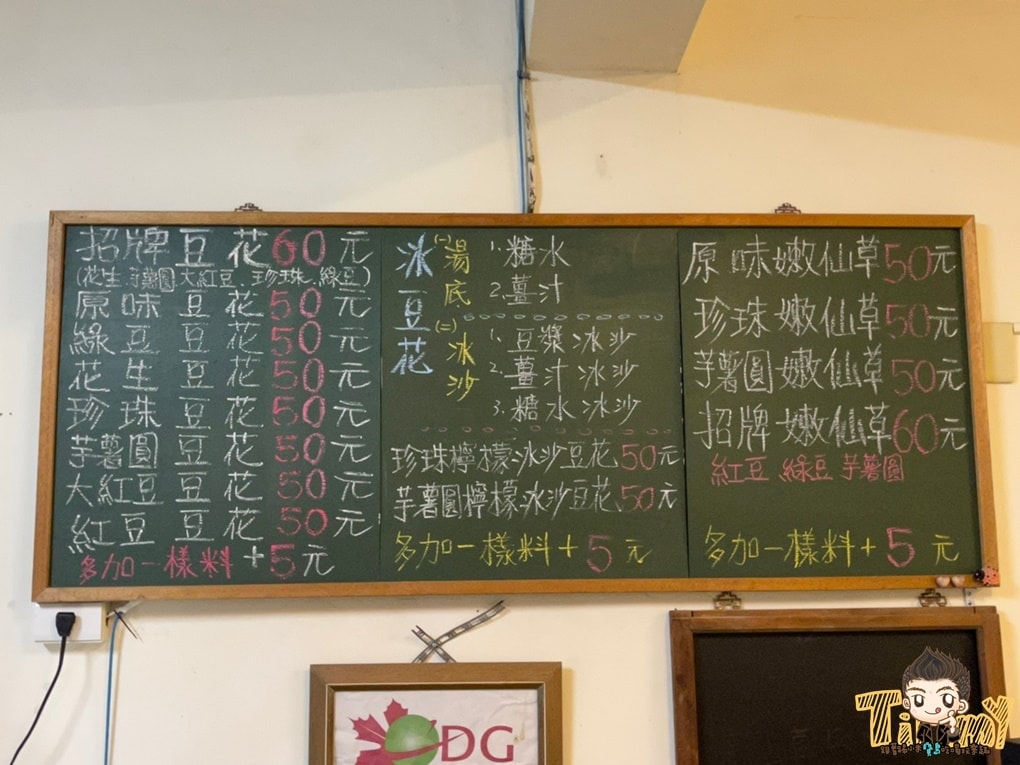 招牌豆花60元
(花生.芋薯圓.大紅豆、珍珠、綠豆)
原味豆花50元
綠豆豆花50元
花生豆花50元
珍珠豆花50元
芋薯圓豆花50元
大紅豆豆花50元
紅豆豆花50元
多加一樣料+5元
冰豆花
(一)湯底
1.糖水
2.薑汁
(二)冰沙
1.豆漿冰沙
2.薑汁冰沙
3.糖水冰沙
珍珠檸檬冰沙豆花50元
芋薯圓檸檬冰沙豆花50元
多加一樣料+5元
原味嫩仙草50元
珍珠嫩仙草50元
芋薯圓嫩仙草50元
招牌嫩仙草60元
紅豆 綠豆 芋薯圓
多加一樣料+5元
DG